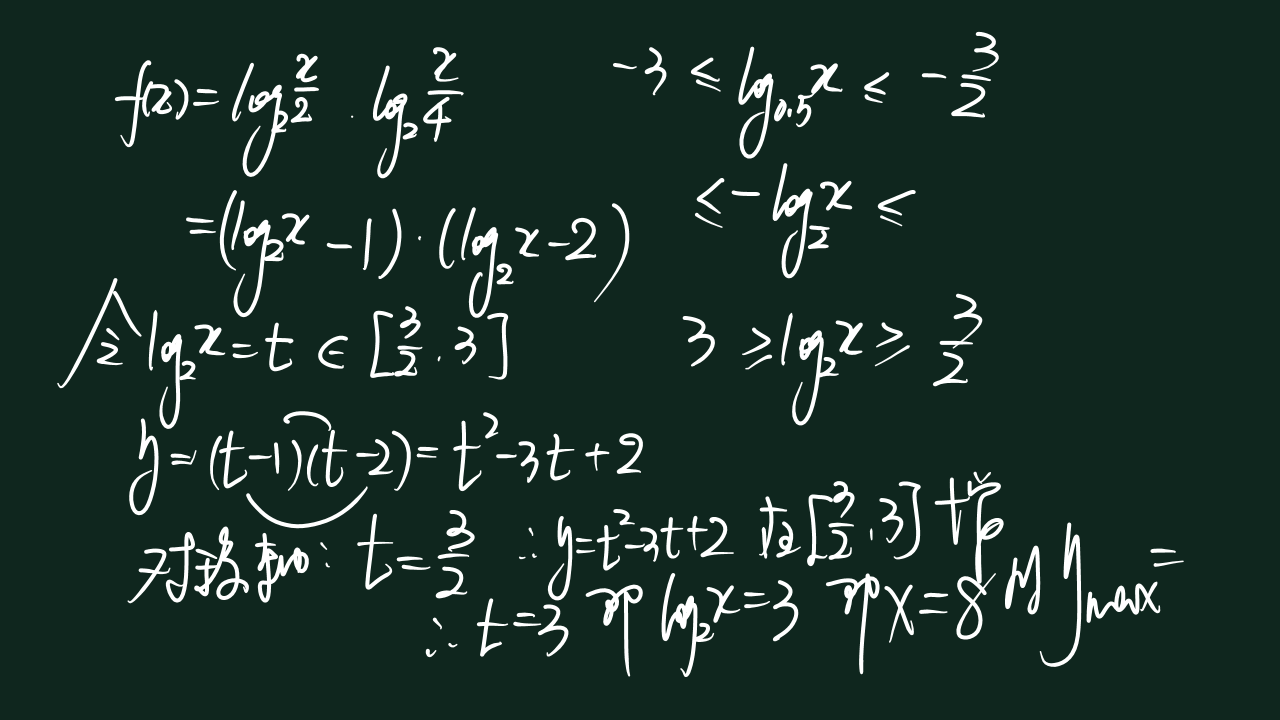 f(x)=log₂ x/2 · log₂ x/4
=(log₂x-1)·(log₂x-2)
令 log₂x=t∈[3/2,3]
y=(t-1)(t-2)=t²-3t+2
对称轴: t=3/2 ∴y=t²-3t+2 在[3/2,3]
∴t=3 即 log₂x=3 即x=8 时 y_max=
-3≤log₀.₅x≤-3/2
≤-log₂x≤
3≥log₂x≥3/2